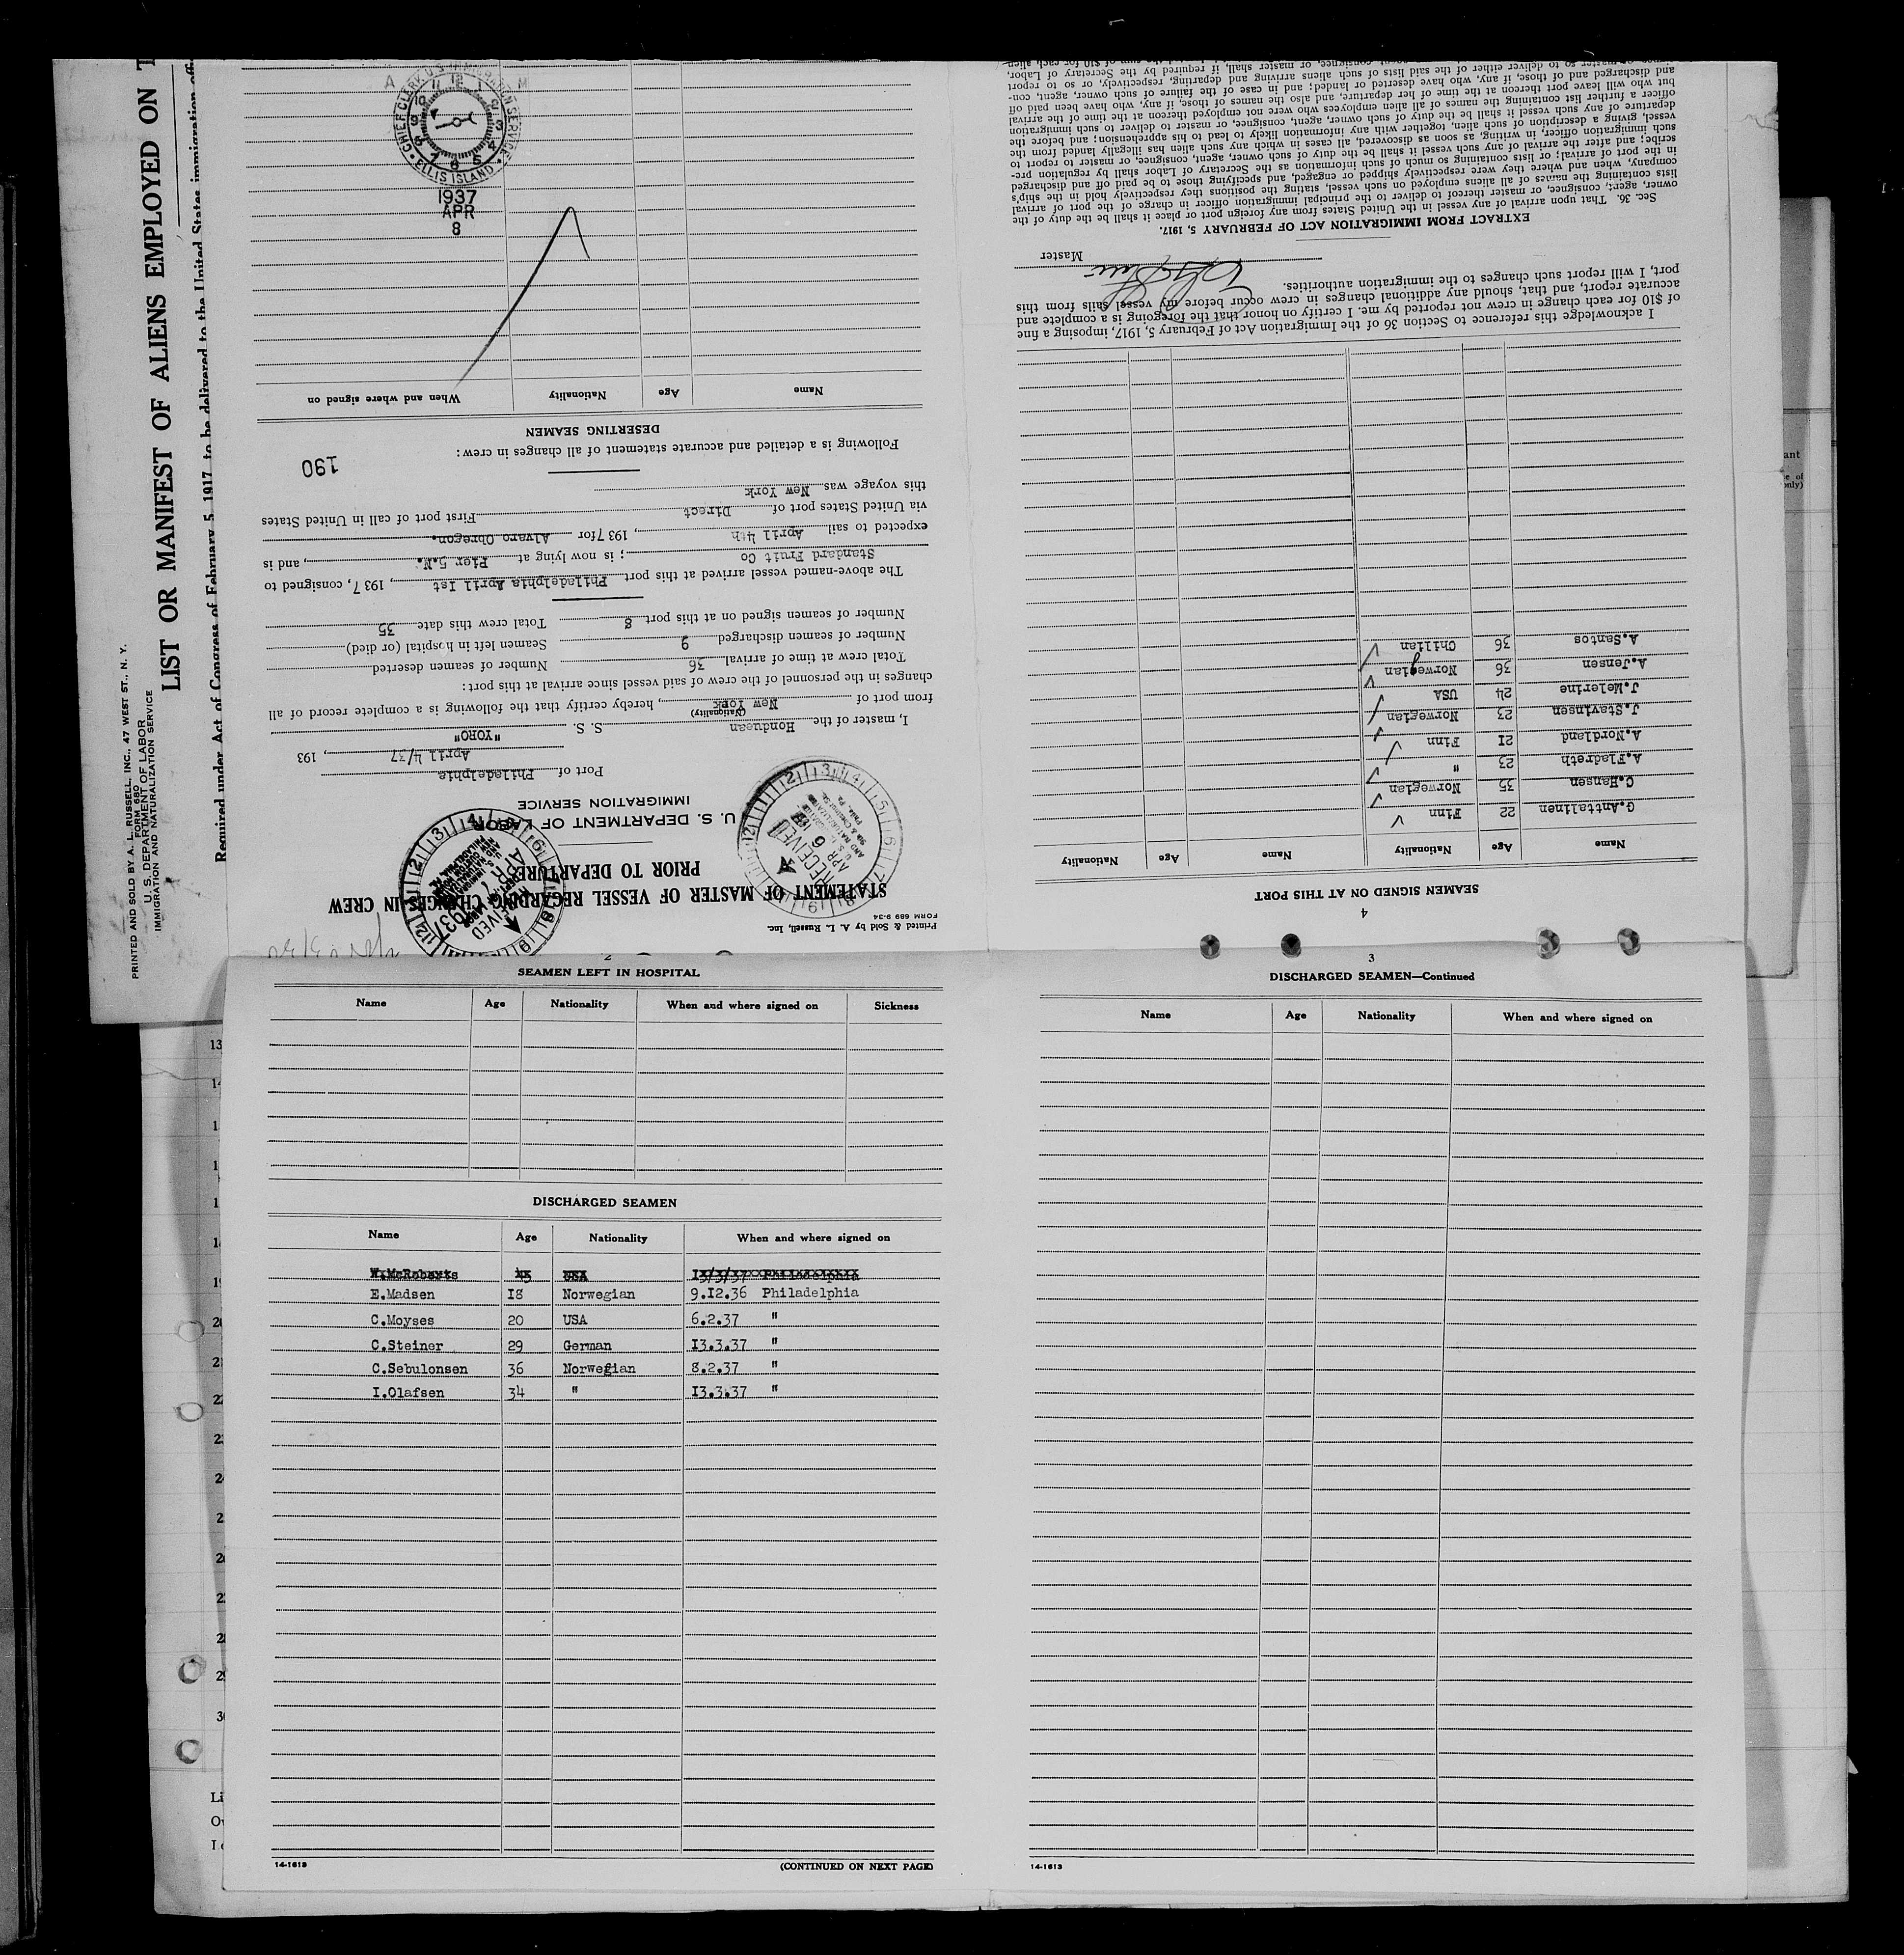 PRINTED AND SOLD BY A. L. RUSSELL, INC., 47 WEST ST., N. Y.
FORM 680
U. S. DEPARTMENT OF LABOR
IMMIGRATION AND NATURALIZATION SERVICE
LIST OR MANIFEST OF ALIENS EMPLOYED ON T
Required under Act of Congress of February 5, 1917, to be delivered to the United States immigration
Printed & Sold by A. L. Russell, Inc.
FORM 689 9-34
STATEMENT OF MASTER OF VESSEL REGARDING CHANGES IN CREW
PRIOR TO DEPARTURE
U. S. DEPARTMENT OF LABOR
IMMIGRATION SERVICE
RECEIVED
APR 7 1937
RECEIVED
APR 6
Port of Philadelphia
April 4/37, 193
I, master of the Honduean S. S. "YORO"
(Nationality)
from port of New York, hereby certify that the following is a complete record of all
changes in the personnel of the crew of said vessel since arrival at this port:
Total crew at time of arrival 36 Number of seamen deserted
Number of seamen discharged 9 Seamen left in hospital (or died)
Number of seamen signed on at this port 8 Total crew this date 35
The above-named vessel arrived at this port Philadelphia April Ist, 1937, consigned to
Standard Fruit Co; is now lying at Pier 5.N., and is
expected to sail April 4th, 1937 for Alvaro Obregon.
via United States port of Direct First port of call in United States
this voyage was New York
190
Following is a detailed and accurate statement of all changes in crew:
DESERTING SEAMEN
Name Age Nationality When and where signed on
CHIEF CLERK U.S. IMMIGRATION SERVICE
ELLIS ISLAND
1937
APR
8
2
SEAMEN LEFT IN HOSPITAL
Name Age Nationality When and where signed on Sickness
DISCHARGED SEAMEN
Name Age Nationality When and where signed on
W.McRoberts 45 USA 13/3/37 Philadelphia
E.Madsen I8 Norwegian 9.I2.36 Philadelphia
C.Moyses 20 USA 6.2.37 "
C.Steiner 29 German I3.3.37 "
C.Sebulonsen 36 Norwegian 8.2.37 "
I.Olafsen 34 " I3.3.37 "
14-1613
(CONTINUED ON NEXT PAGE)
3
DISCHARGED SEAMEN—Continued
Name Age Nationality When and where signed on
14-1613
4
SEAMEN SIGNED ON AT THIS PORT
Name Age Nationality Name Age Nationality
G.Anttalinen 22 Finn
C.Hansen 35 Norwegian
A.Fladreth 23 "
A.Nordland 2I Finn
J.Stavinsen 23 Norwegian
J.Melerine 24 USA
A.Jensen 36 Norwegian
A.Santos 36 Chilian
I acknowledge this reference to Section 36 of the Immigration Act of February 5, 1917, imposing a fine
of $10 for each change in crew not reported by me. I certify on honor that the foregoing is a complete and
accurate report, and that, should any additional changes in crew occur before my vessel sails from this
port, I will report such changes to the immigration authorities.
Master
EXTRACT FROM IMMIGRATION ACT OF FEBRUARY 5, 1917.
Sec. 36. That upon arrival of any vessel in the United States from any foreign port or place it shall be the duty of the
owner, agent, consignee, or master thereof to deliver to the principal immigration officer in charge of the port of arrival
lists containing the names of all aliens employed on such vessel, stating the positions they respectively hold in the ship's
company, when and where they were respectively shipped or engaged, and specifying those to be paid off and discharged
in the port of arrival; or lists containing so much of such information as the Secretary of Labor shall by regulation pre-
scribe; and after the arrival of any such vessel it shall be the duty of such owner, agent, consignee, or master to report to
such immigration officer, in writing, as soon as discovered, all cases in which any such alien has illegally landed from the
vessel, giving a description of such alien, together with any information likely to lead to his apprehension; and before the
departure of any such vessel it shall be the duty of such owner, agent, consignee, or master to deliver to such immigration
officer a further list containing the names of all alien employees who were not employed thereon at the time of the arrival
but who will leave port thereon at the time of her departure, and also the names of those, if any, who have been paid off
and discharged and of those, if any, who have deserted or landed; and in case of the failure of such owner, agent, con-
signee, or master so to deliver either of the said lists of such aliens arriving and departing, respectively, or so to report